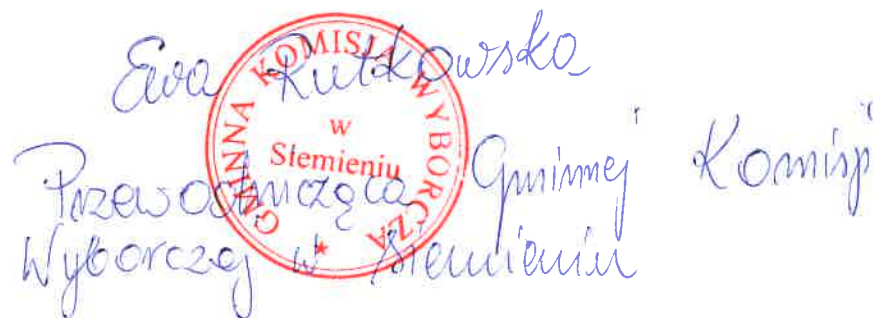 Ewa Rutkowska
GMINNA KOMISJA WYBORCZA
w
Siemieniu
Przewodnicząca Gminnej Komisji
Wyborczej w Siemieniu